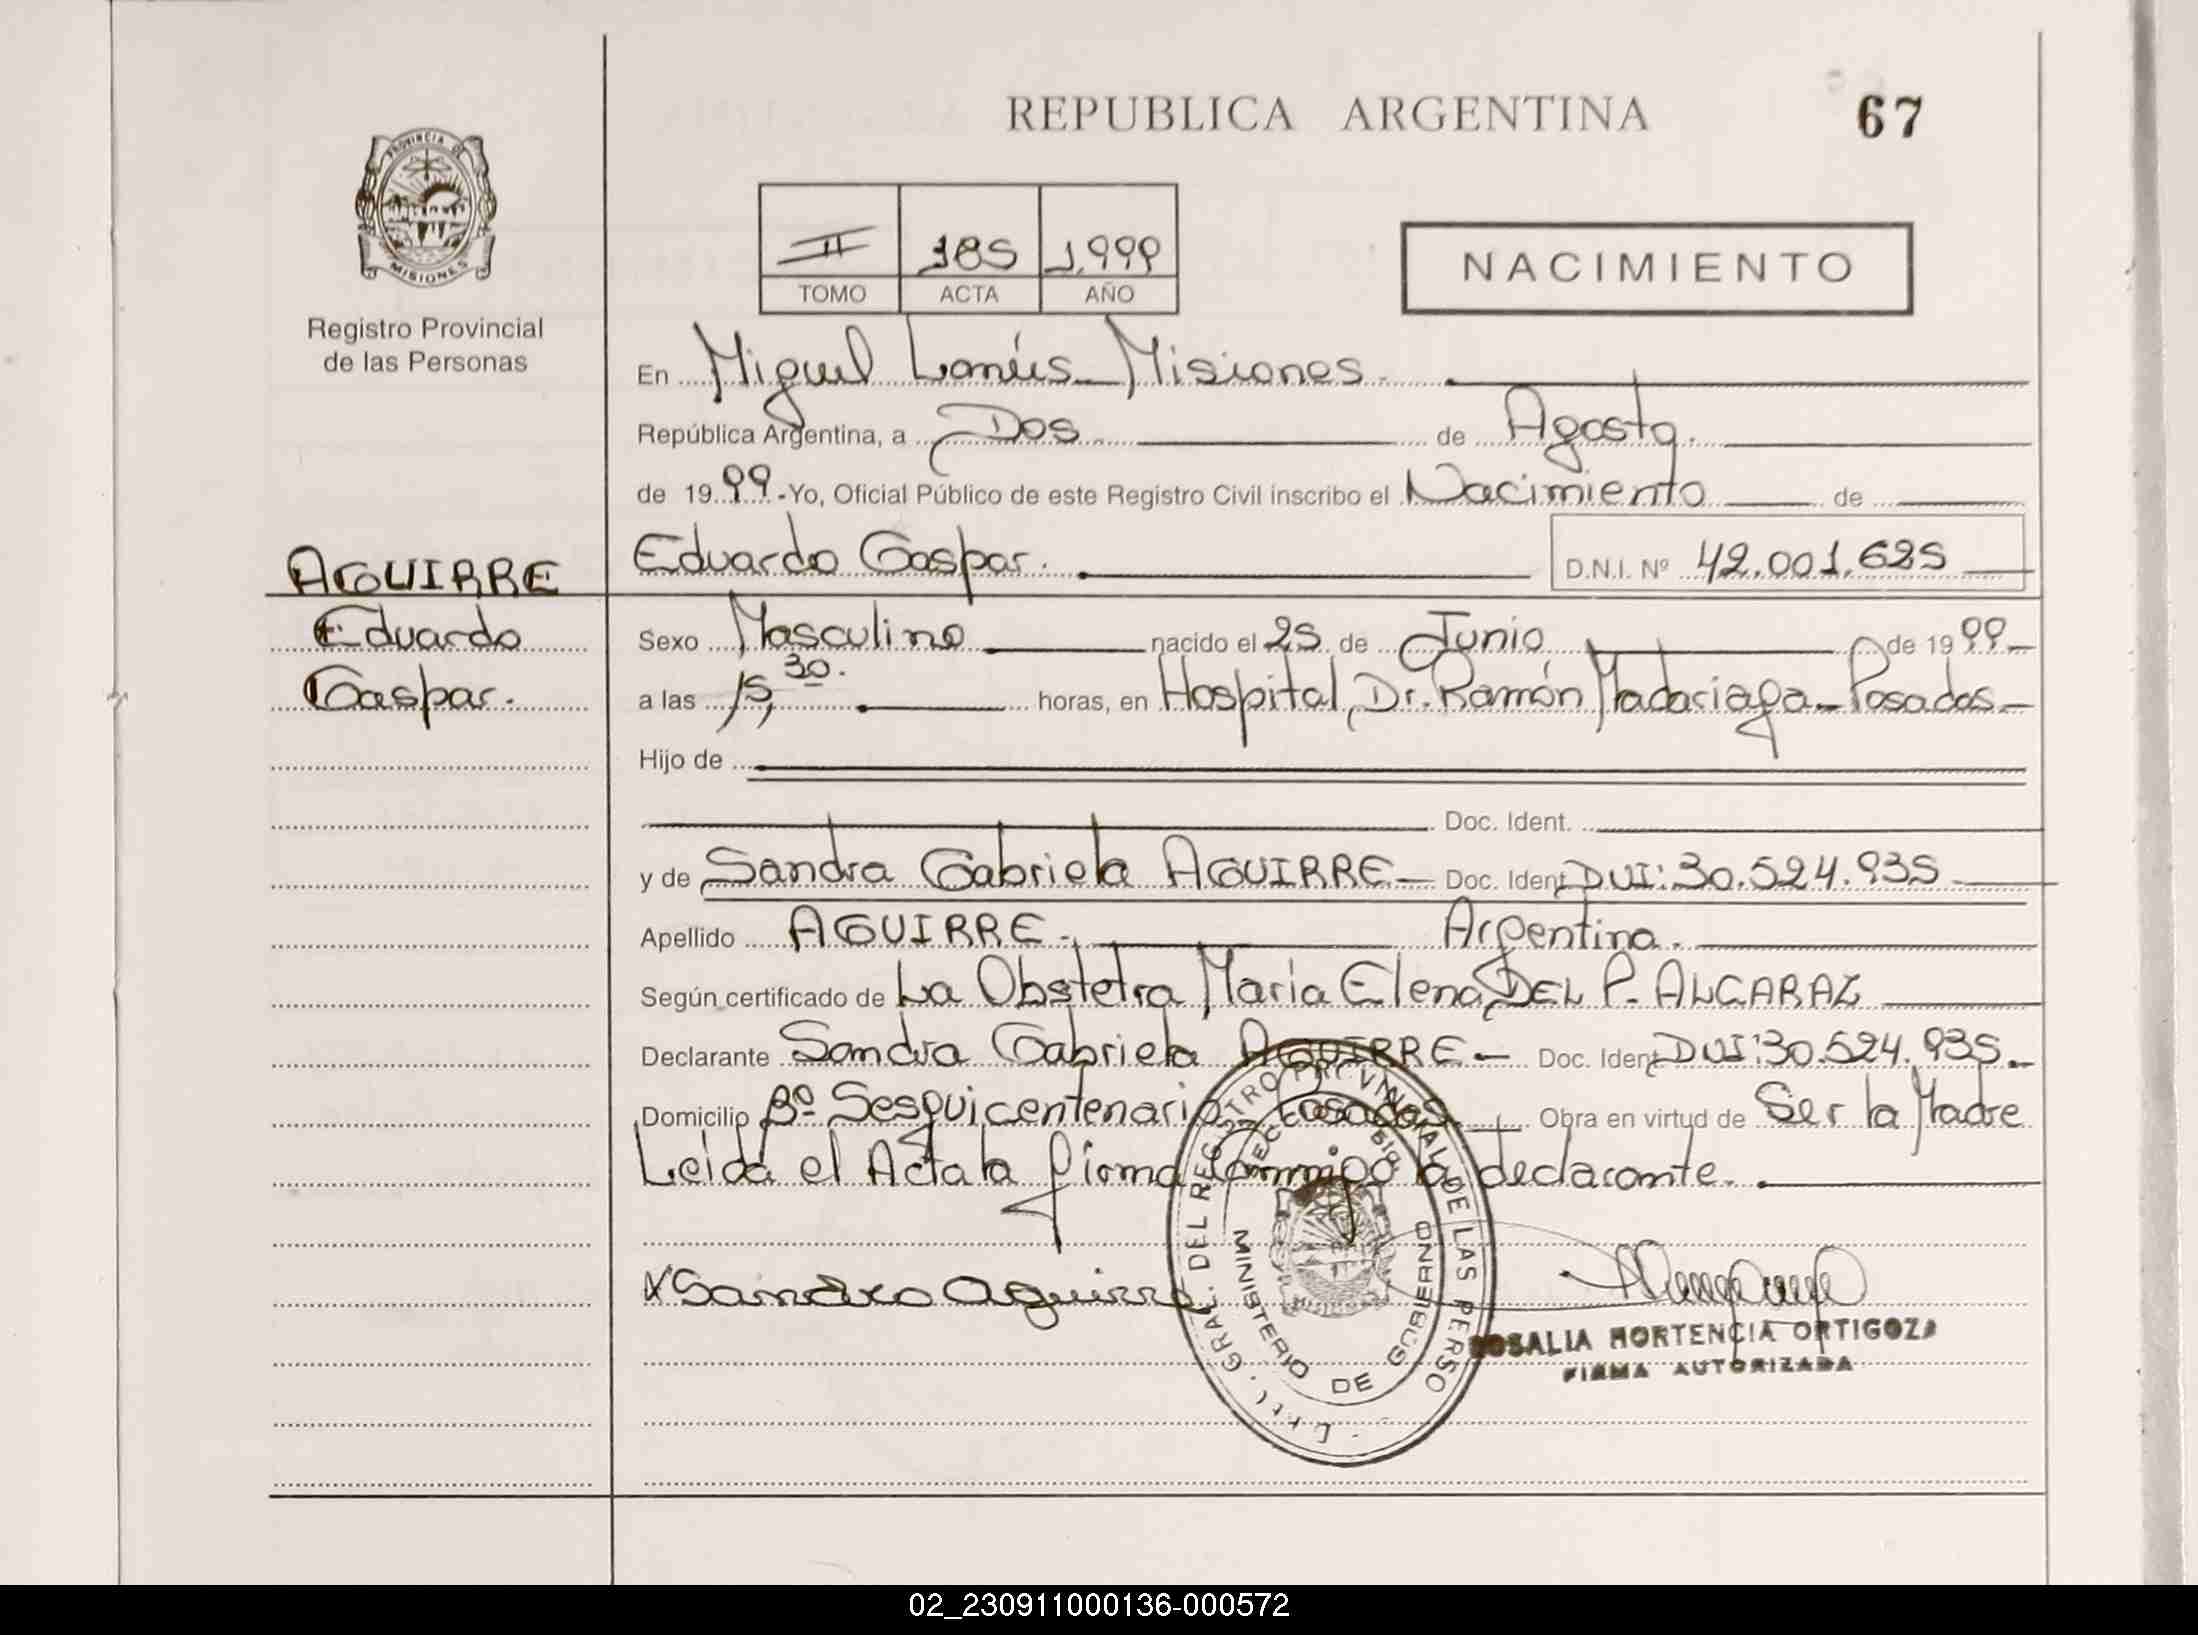 REPUBLICA ARGENTINA
67
PROVINCIA DE
MISIONES
Registro Provincial
de las Personas
II 185 1.999
TOMO ACTA AÑO
NACIMIENTO
En Miguel Lanús - Misiones.
República Argentina, a Dos de Agosto.
de 1999.-Yo, Oficial Público de este Registro Civil inscribo el Nacimiento de
AGUIRRE
Eduardo
Gaspar.
Eduardo Gaspar. D.N.I. Nº 42.001.625
Sexo Masculino nacido el 25 de Junio de 1999-
a las 15,30. horas, en Hospital, Dr. Ramón Madariaga - Posadas -
Hijo de
Doc. Ident.
y de Sandra Gabriela AGUIRRE - Doc. Ident DUI: 30.524.935
Apellido AGUIRRE. Argentina.
Según certificado de La Obstetra Maria Elena DEL P. ALCARAZ
Declarante Sandra Gabriela AGUIRRE - Doc. Ident DUI: 30.524.935.-
Domicilio Bº Sesquicentenario Posadas Obra en virtud de Ser la Madre
Leida el Acta la firma conmigo la declarante.
X Sandra Aguirre
GRAL. DEL REGISTRO PROVINCIAL DE LAS PERSO
MINISTERIO DE GOBIERNO
ROSALIA HORTENCIA ORTIGOZA
FIRMA AUTORIZADA
02_230911000136-000572